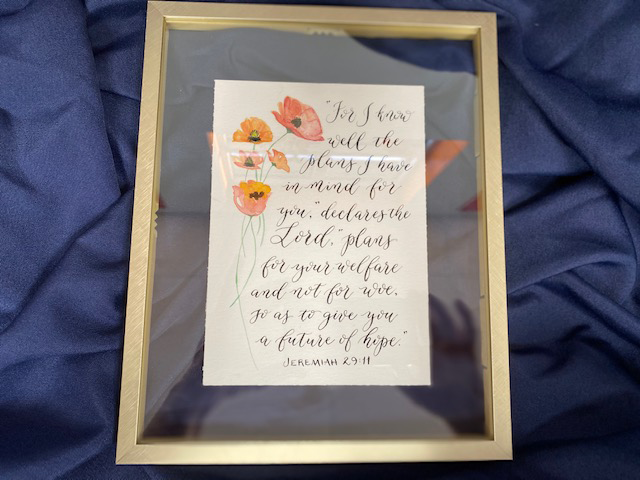 "For I know
well the
plans I have
in mind for
you," declares the
Lord, "plans
for your welfare
and not for woe,
so as to give you
a future of hope."
JEREMIAH 29:11